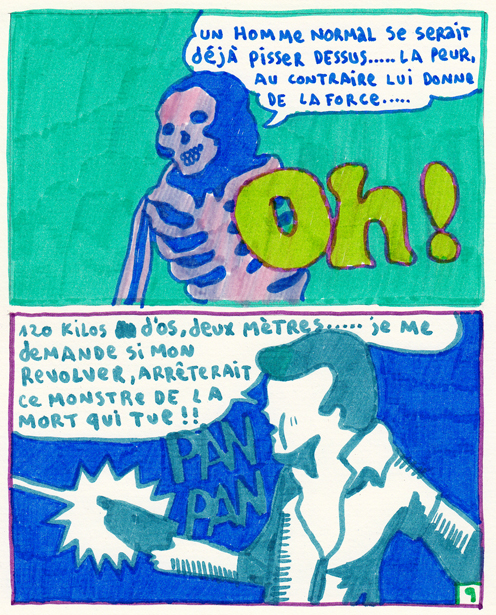 UN HOMME NORMAL SE SERAIT
DÉJÀ PISSER DESSUS..... LA PEUR,
AU CONTRAIRE LUI DONNE
DE LA FORCE.....
Oh!
120 KILOS d'OS, DEUX MÈTRES..... JE ME
DEMANDE SI MON
REVOLVER, ARRÊTERAIT
CE MONSTRE DE LA
MORT QUI TUE!!
PAN
PAN
9